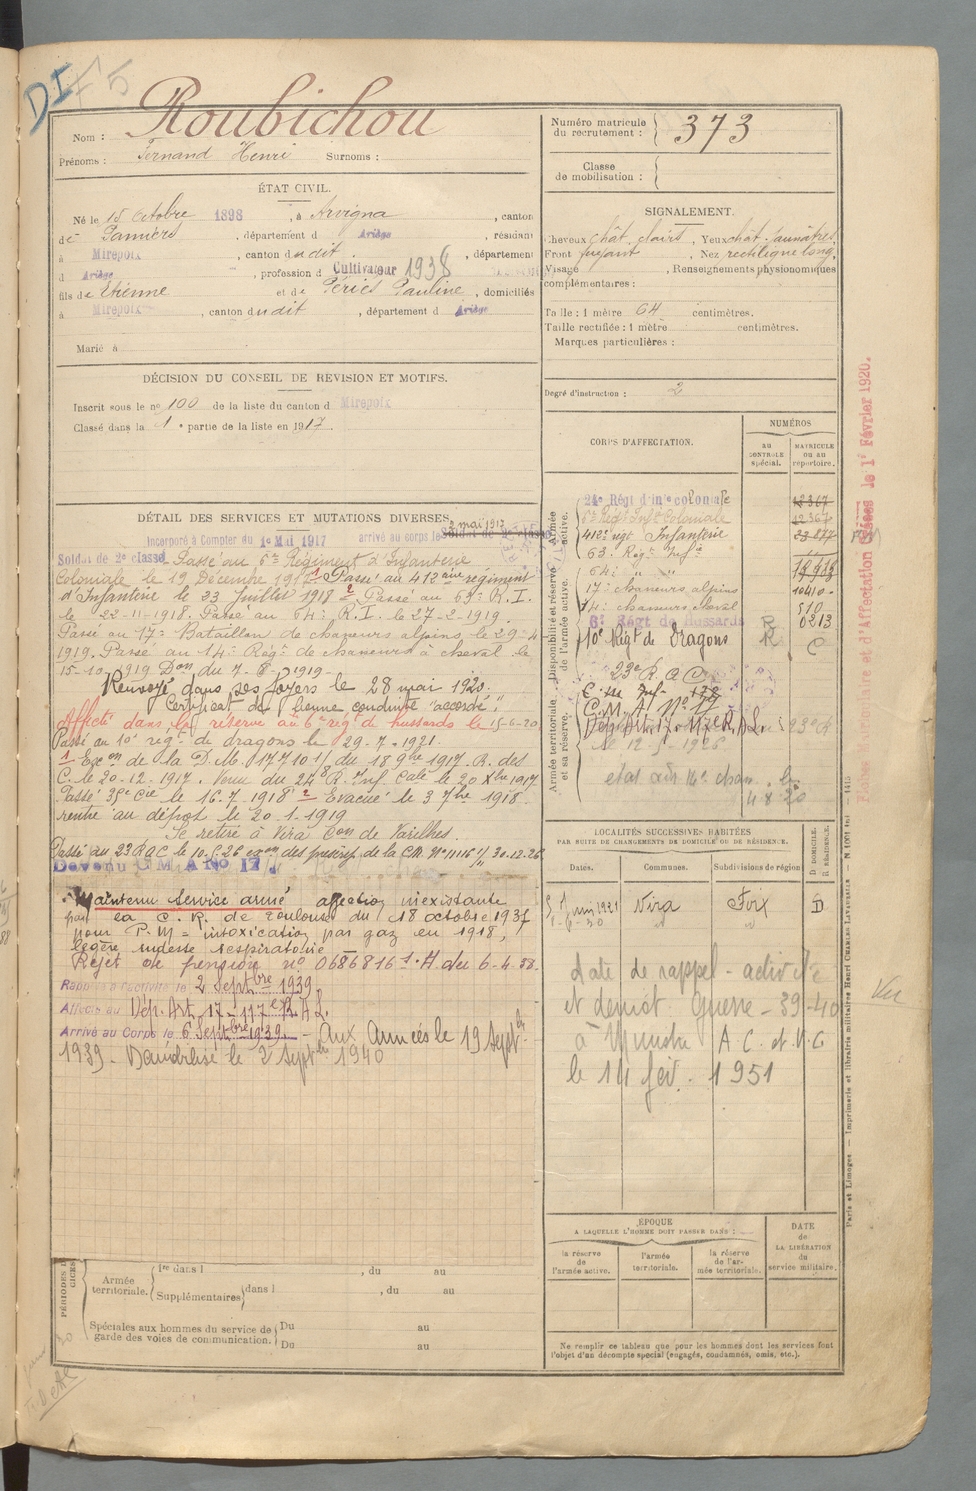 DI
F5
Nom : Roubichou
Prénoms : Fernand Henri Surnoms :
ÉTAT CIVIL.
Né le 15 Octobre 1898, à Arvigna, canton
de Pamiers, département d Ariège, résidant
à Mirepoix, canton dudit, département
d Ariège, profession d Cultivateur 1938
fils de Etienne et de Périès Pauline, domiciliés
à Mirepoix, canton dudit, département d Ariège
Marié à
DÉCISION DU CONSEIL DE REVISION ET MOTIFS.
Inscrit sous le no 100 de la liste du canton d Mirepoix
Classé dans la 1e partie de la liste en 1917.
DÉTAIL DES SERVICES ET MUTATIONS DIVERSES
Incorporé à Compter du 1er Mai 1917 arrivé au corps le 2 mai 1917 Soldat de 2e classe
Soldat de 2e classe Passé au 6e Régiment d'Infanterie
Coloniale le 19 Décembre 1917 1 Passé au 412ème régiment
d'Infanterie le 23 Juillet 1918 2 Passé au 63e R.I.
le 22-11-1918. Passé au 64e R.I. le 27-2-1919.
Passé au 17e Bataillon de chasseurs alpins, le 29-4-
1919. Passé au 14e Régt de chasseurs à cheval le
15-10-1919 Don du 7-8-1919-
Renvoyé dans ses foyers le 28 mai 1920.
Certificat de bonne conduite "accordé"
Affecté dans la réserve au 6e régt de hussards le 15-6-20
Passé au 10e régt de dragons le 29-7-1921.
1 Exon de la D.M. 17710 1/8 du 18 9bre 1917. R. des
C. le 20-12-1917. Venu du 24e R. Inf Cale le 20 Xbre 1917
Passé 35e Cie le 16-7-1918 2 Evacué le 3 7bre 1918
rentré au dépôt le 20-1-1919
Se retire à Vira Con de Varilhes.
Passé au 23 RAC le 10-5-26 exon des prescrip. de la C.M. No 11116 1/11 30-12-26
Devenu C M A No 17
Maintenu Service armé affection inexistante
par la C.R. de Toulouse du 18 octobre 1937
pour P.M = intoxication par gaz en 1918,
légère rudesse respiratoire
Rejet de pension no 0686816 1.H du 6-4-38.
Rappelé à l'activité le 2 Septbre 1939
Affecté au Dép. Art. 17 - 117e R.A.L.
Arrivé au Corps le 6 Septbre 1939. - Aux Armées le 19 Septbre
1939 - Démobilisé le 2 Septbre 1940
PÉRIODES
Armée territoriale. 1re dans l , du au
Supplémentaires dans l , du au
Spéciales aux hommes du service de garde des voies de communication. Du au
Du au
Numéro matricule du recrutement : 373
Classe de mobilisation :
SIGNALEMENT.
Cheveux chât. clairs, Yeux chât. jaunâtres,
Front fuyant, Nez rectiligne long,
Visage , Renseignements physionomiques
complémentaires :
Taille : 1 mètre 64 centimètres.
Taille rectifiée : 1 mètre centimètres.
Marques particulières :
Degré d'instruction : 2
CORPS D'AFFECTATION.
NUMÉROS
au CONTRÔLE spécial.
MATRICULE ou au répertoire.
Armée active.
Disponibilité et réserve de l'armée active.
Armée territoriale et sa réserve.
24e Régt d'infie coloniale 12367
6e Régt Inft Coloniale 12367
412e rgt Infanterie
63e Régt Infie
64e " "
17e chasseurs alpins 10410
14e chasseurs cheval 510
6e Régt de Hussards R 0213
10e Régt de Dragons R
23e R.A.C
C.M.A. No 17
Dép Art. 17 - 117e R.A.L.
LOCALITÉS SUCCESSIVES HABITÉES
PAR SUITE DE CHANGEMENTS DE DOMICILE OU DE RÉSIDENCE.
Dates. Communes. Subdivisions de région
D. DOMICILE.
R. RÉSIDENCE.
juin 1921 Vira Foix D
date de rappel - activité
et démob. Guerre - 39-40
à Ministre A C. et V.G
le 14 fév. 1951
Vu
ÉPOQUE
A LAQUELLE L'HOMME DOIT PASSER DANS :
la réserve de l'armée active.
l'armée territoriale.
la réserve de l'armée territoriale.
DATE de LA LIBÉRATION du service militaire.
Ne remplir ce tableau que pour les hommes dont les services font
l'objet d'un décompte spécial (engagés, condamnés, omis, etc.).
Paris et Limoges. — Imprimerie et librairie militaires Henri CHARLES-LAVAUZELLE.